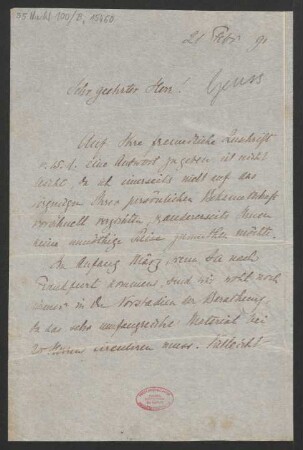 35 Nachl. 100/B, 15460
21 Febr 91
Sehr geehrter Herr!
Auf Ihre freundliche Zuschrift
v. 25. d. eine Antwort zu geben ist nicht
leicht da ich einerseits nicht auf das
Vergnügen Ihrer persönlichen Bekanntschaft
eventuell verzichten, andererseits Ihnen
keine unnöthige Reise zumuthen möchte.
Zu Anfang März, wenn Sie nach
Frankfurt kommen, sind wir wohl noch
immer in den Vorstadien der Berathung
da das sehr umfangreiche Material bei
20 Herren circuliren muss. Vielleicht